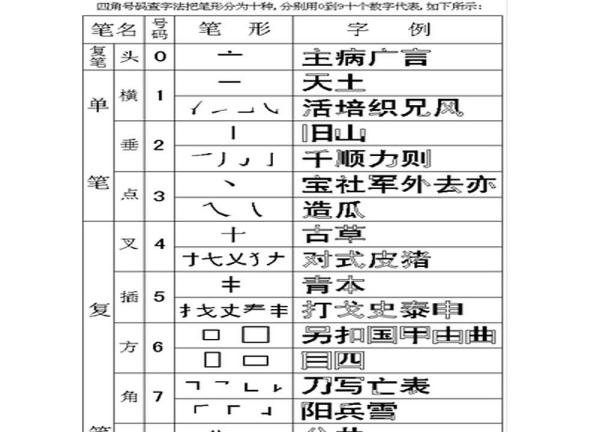 四角号码查字法把笔形分为十种,分别用0到9十个数字代表,如下所示:
笔名 号码 笔形 字例
复笔 头 0 亠 主病广言
单笔 横 1 一 天土
活培织兄风
垂 2 丨 旧山
千顺力则
点 3 丶 宝社军外去亦
造瓜
复 叉 4 十 古草
对式皮猪
插 5 青本
打戈史泰申
方 6 口 囗 另扣国甲由曲
目四
角 7 刀写亡表
阳兵雪